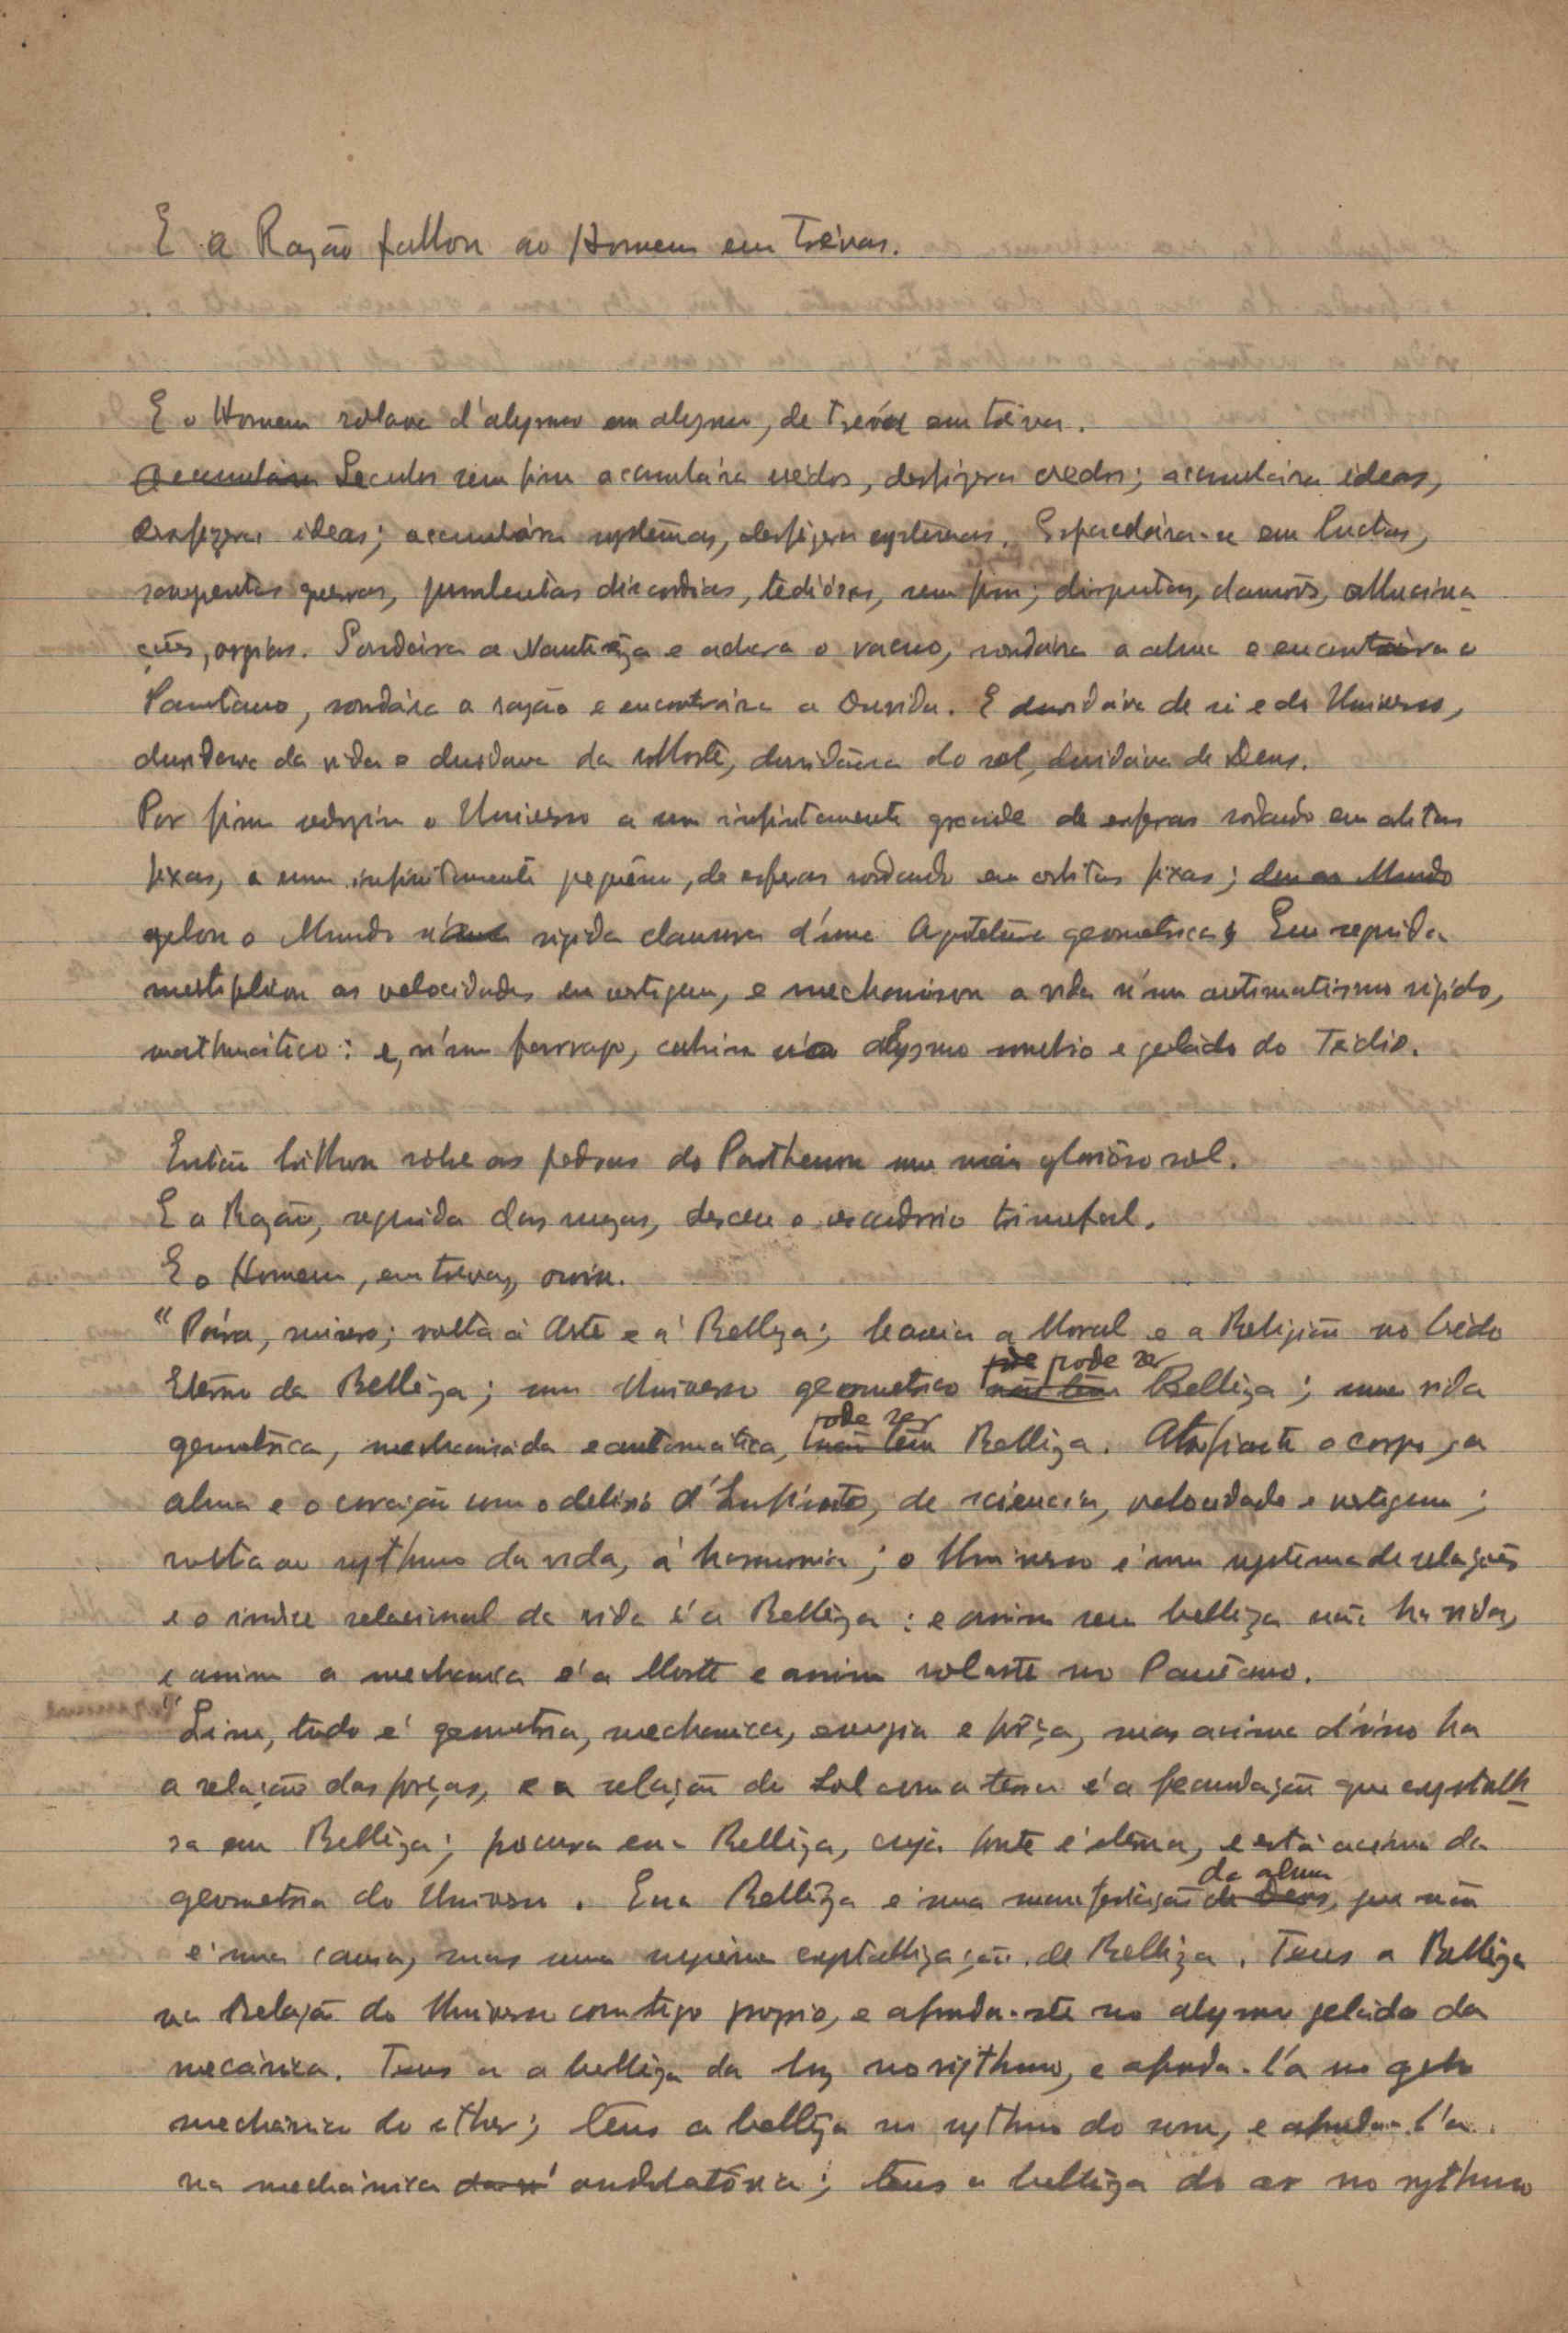 E a Razão fallou ao Homem em Trévas.
E o Homem rolava d'abysmo em abysmo, de tréva em tréva.
Acumulára Seculos sem fim acumulára crédos, desfizera credos; acumulára ideas,
desfizera ideas; acumulára systêmas, desfizera systêmas. Esfacelára-se em luctas,
sangrentas guerras, purulentas discordias, tediósas, sem fim; disputas, clamôrs, allucina-
ções, orgias. Sondára a Natureza e achara o vacuo, sondára a alma e encontrára o
Pantano, sondára a razão e encontrára a Duvida. E duvidáva de si e do Universo,
duvidava da vida e duvidava da Morte, duvidáva do sol, duvidáva de Deus.
Por fim reduzira o Universo a um infinitamente grande de esferas rodando em orbitas
fixas, a um infinitamente pequêno, de esferas rodando em orbitas fixas; deu ao Mundo
gelou o Mundo n'uma rigida clausura d'uma geometrica; Em seguida
multiplicou as velocidades em vertigem, e mechanisou a vida n'um automatismo rigido,
mathmático: e, n'um farrapo, cahira n'o abysmo sombrio e gelado do Tédio.
Então brilhou sobre as pedras do Parthenon um mais gloriôso sol.
E a Razão, seguida das musas, desceu a escadaria triunfal.
E o Homem, em trevas, ouviu.
"Pára, misero; volta á Arte e á Belleza; baseia a Moral e a Religião no Crédo
Eterno da Belleza; um Universo geometrico não tem póde pode ser Belleza; uma vida
geometrica, mechanisada e automática, não tem pode ser Belleza. Atrofiaste o corpo, a
alma e o coração com o delirio d'Infinito, de sciencia, velocidade e vertigem;
volta ao rythmo da vida, á harmonia; o Universo é um systema de relações
e o indice relacional da vida é a Belleza: e assim sem belleza não ha vida,
e assim a mechanica é a Morte e assim rolaste no Pantano.
"Sim, tudo é geometria, mechanica, energia e fôrça, mas acima d'isso ha
a relação das forças, e a relação do Sol com a terra é a fecundação que crystali-
sa em Belleza; procura essa Belleza, cuja fonte é eterna, e está acima da
geometria do Universo. Essa Belleza é uma manifestação de Deus, da alma que não
é uma causa, mas uma suprêma crystallização de Belleza. Tens a Belleza
na Relação do Universo comtigo proprio, e afunda-ste no abysmo gelado da
mecánica. Tens a a belleza da luz no rythmo, e afunda-l'a no gelo
mechánico do ether; tens a belleza no rythmo do som, e afunda-l'a
na mechánica ondulatória; tens a belleza do ar no rythmo